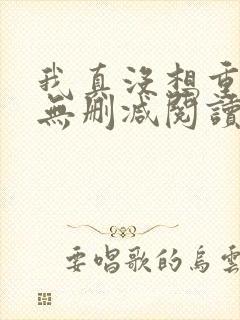 我真没想重
無刪减閱讀
要唱歌的烏雲